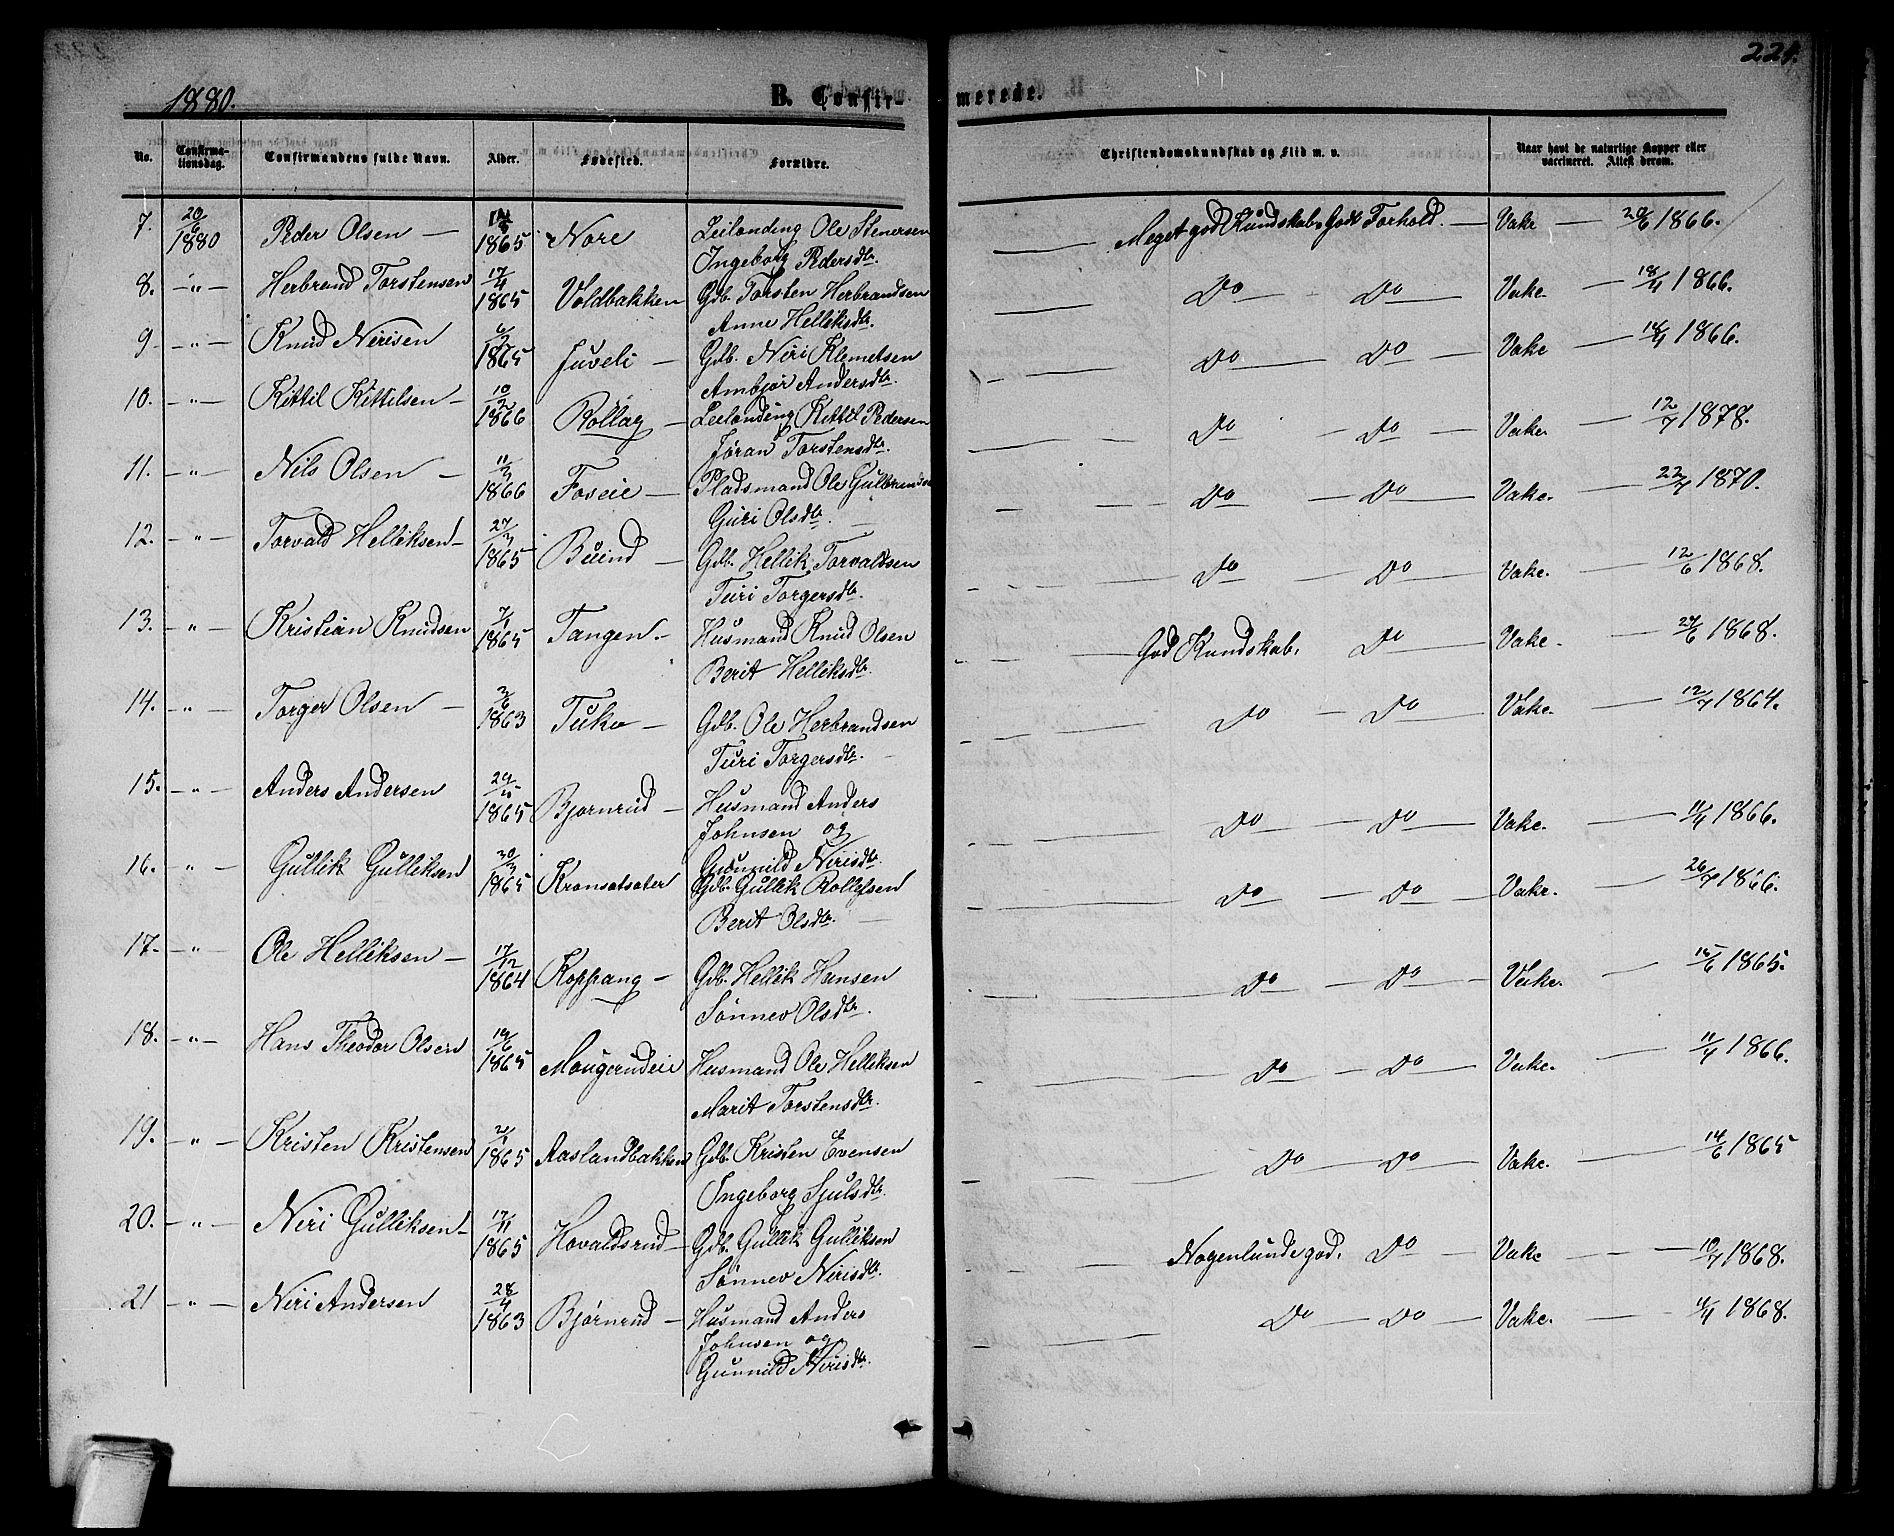 1880.
B. Confir-
merede.
221.
No.
Confirma-
tionsdag.
Confirmandens fulde Navn.
Alder.
Fødested.
Forældre.
Christendomskundskab og Flid m. v.
Naar havt de naturlige Kopper eller
vaccineret. Attest derom.
7. 20/6 1880 Peder Olsen — 1865 Nore Leilending Ole Stenersen
Ingeborg Pedersdtr. Meget god Kundskab. Godt Forhold. — Vake — 20/6 1866.
8. — " — Herbrand Torstensen 17/4 1865 Voldbakken Gdb. Torsten Herbrandsen
Anne Helliksdtr. Do — Do — Vake. — 18/4 1866.
9. — " — Knud Nirisen 1865 Juveli — Gdb. Niri Klemetsen
Ambjør Andersdtr. Do — Do — Vake — 18/4 1866.
10. — " — Kittil Kittilsen — 10/2 1866 Rollag — Leilending Kittil Pedersen
Jøran Torstensdtr. Do — Do — Vake. — 12/7 1878.
11. — " — Nils Olsen — 11/3 1866 Foseie — Pladsmand Ole Gulbrandsen
Guri Olsdtr. Do — Do — Vake. — 22/7 1870.
12. — " — Torvald Helliksen — 27/3 1865 Buind — Gdb. Hellik Torvaldsen
Turi Torgersdtr. Do — Do — Vake. — 12/6 1868.
13. — " — Kristian Knudsen 7/1 1865 Tangen — Husmand Knud Olsen
Berit Helliksdtr. God Kundskab. Do — Vake. — 27/6 1868.
14. — " — Torger Olsen — 3/6 1863 Tuko — Gdb. Ole Herbrandsen
Turi Torgersdtr. — Do — Do — Vake. — 12/7 1864.
15. — " — Anders Andersen 1865 Bjørnrud — Husmand Anders
Johnsen og
Gunnild Nirisdtr. Do — Do — Vake. — 11/4 1866.
16. — " — Gullik Gulliksen 30/3 1865 Kransatsater Gdb. Gullik Rollefsen
Berit Olsdtr. — Do — Do — Vake. — 26/7 1866.
17. — " — Ole Helliksen — 17/12 1864 Koppang — Gdb. Hellik Hansen
Sønnev Olsdtr. Do — Do — Vake. — 15/6 1865.
18. — " — Hans Theodor Olsen 19/6 1865 Mougerudeie Husmand Ole Helliksen
Marit Torstensdtr. Do — Do — Vake. — 11/4 1866.
19. — " — Kristen Kristensen 2/1 1865 Aaslandbakken Gdb. Kristen Evensen
Ingeborg Sjulsdtr. Do — Do — Vake. — 14/6 1865
20. — " — Niri Gulliksen — 17/11 1865 Hovaldsrud — Gdb. Gullik Gulliksen
Sønnev Nirisdtr. Nogenlunde god. Do — Vake — 10/7 1868.
21 — " — Niri Andersen 28/4 1863 Bjørnrud — Husmand Anders
Johnsen og
Gunnild Nirisdtr. Do — Do — Vake. — 11/4 1868.